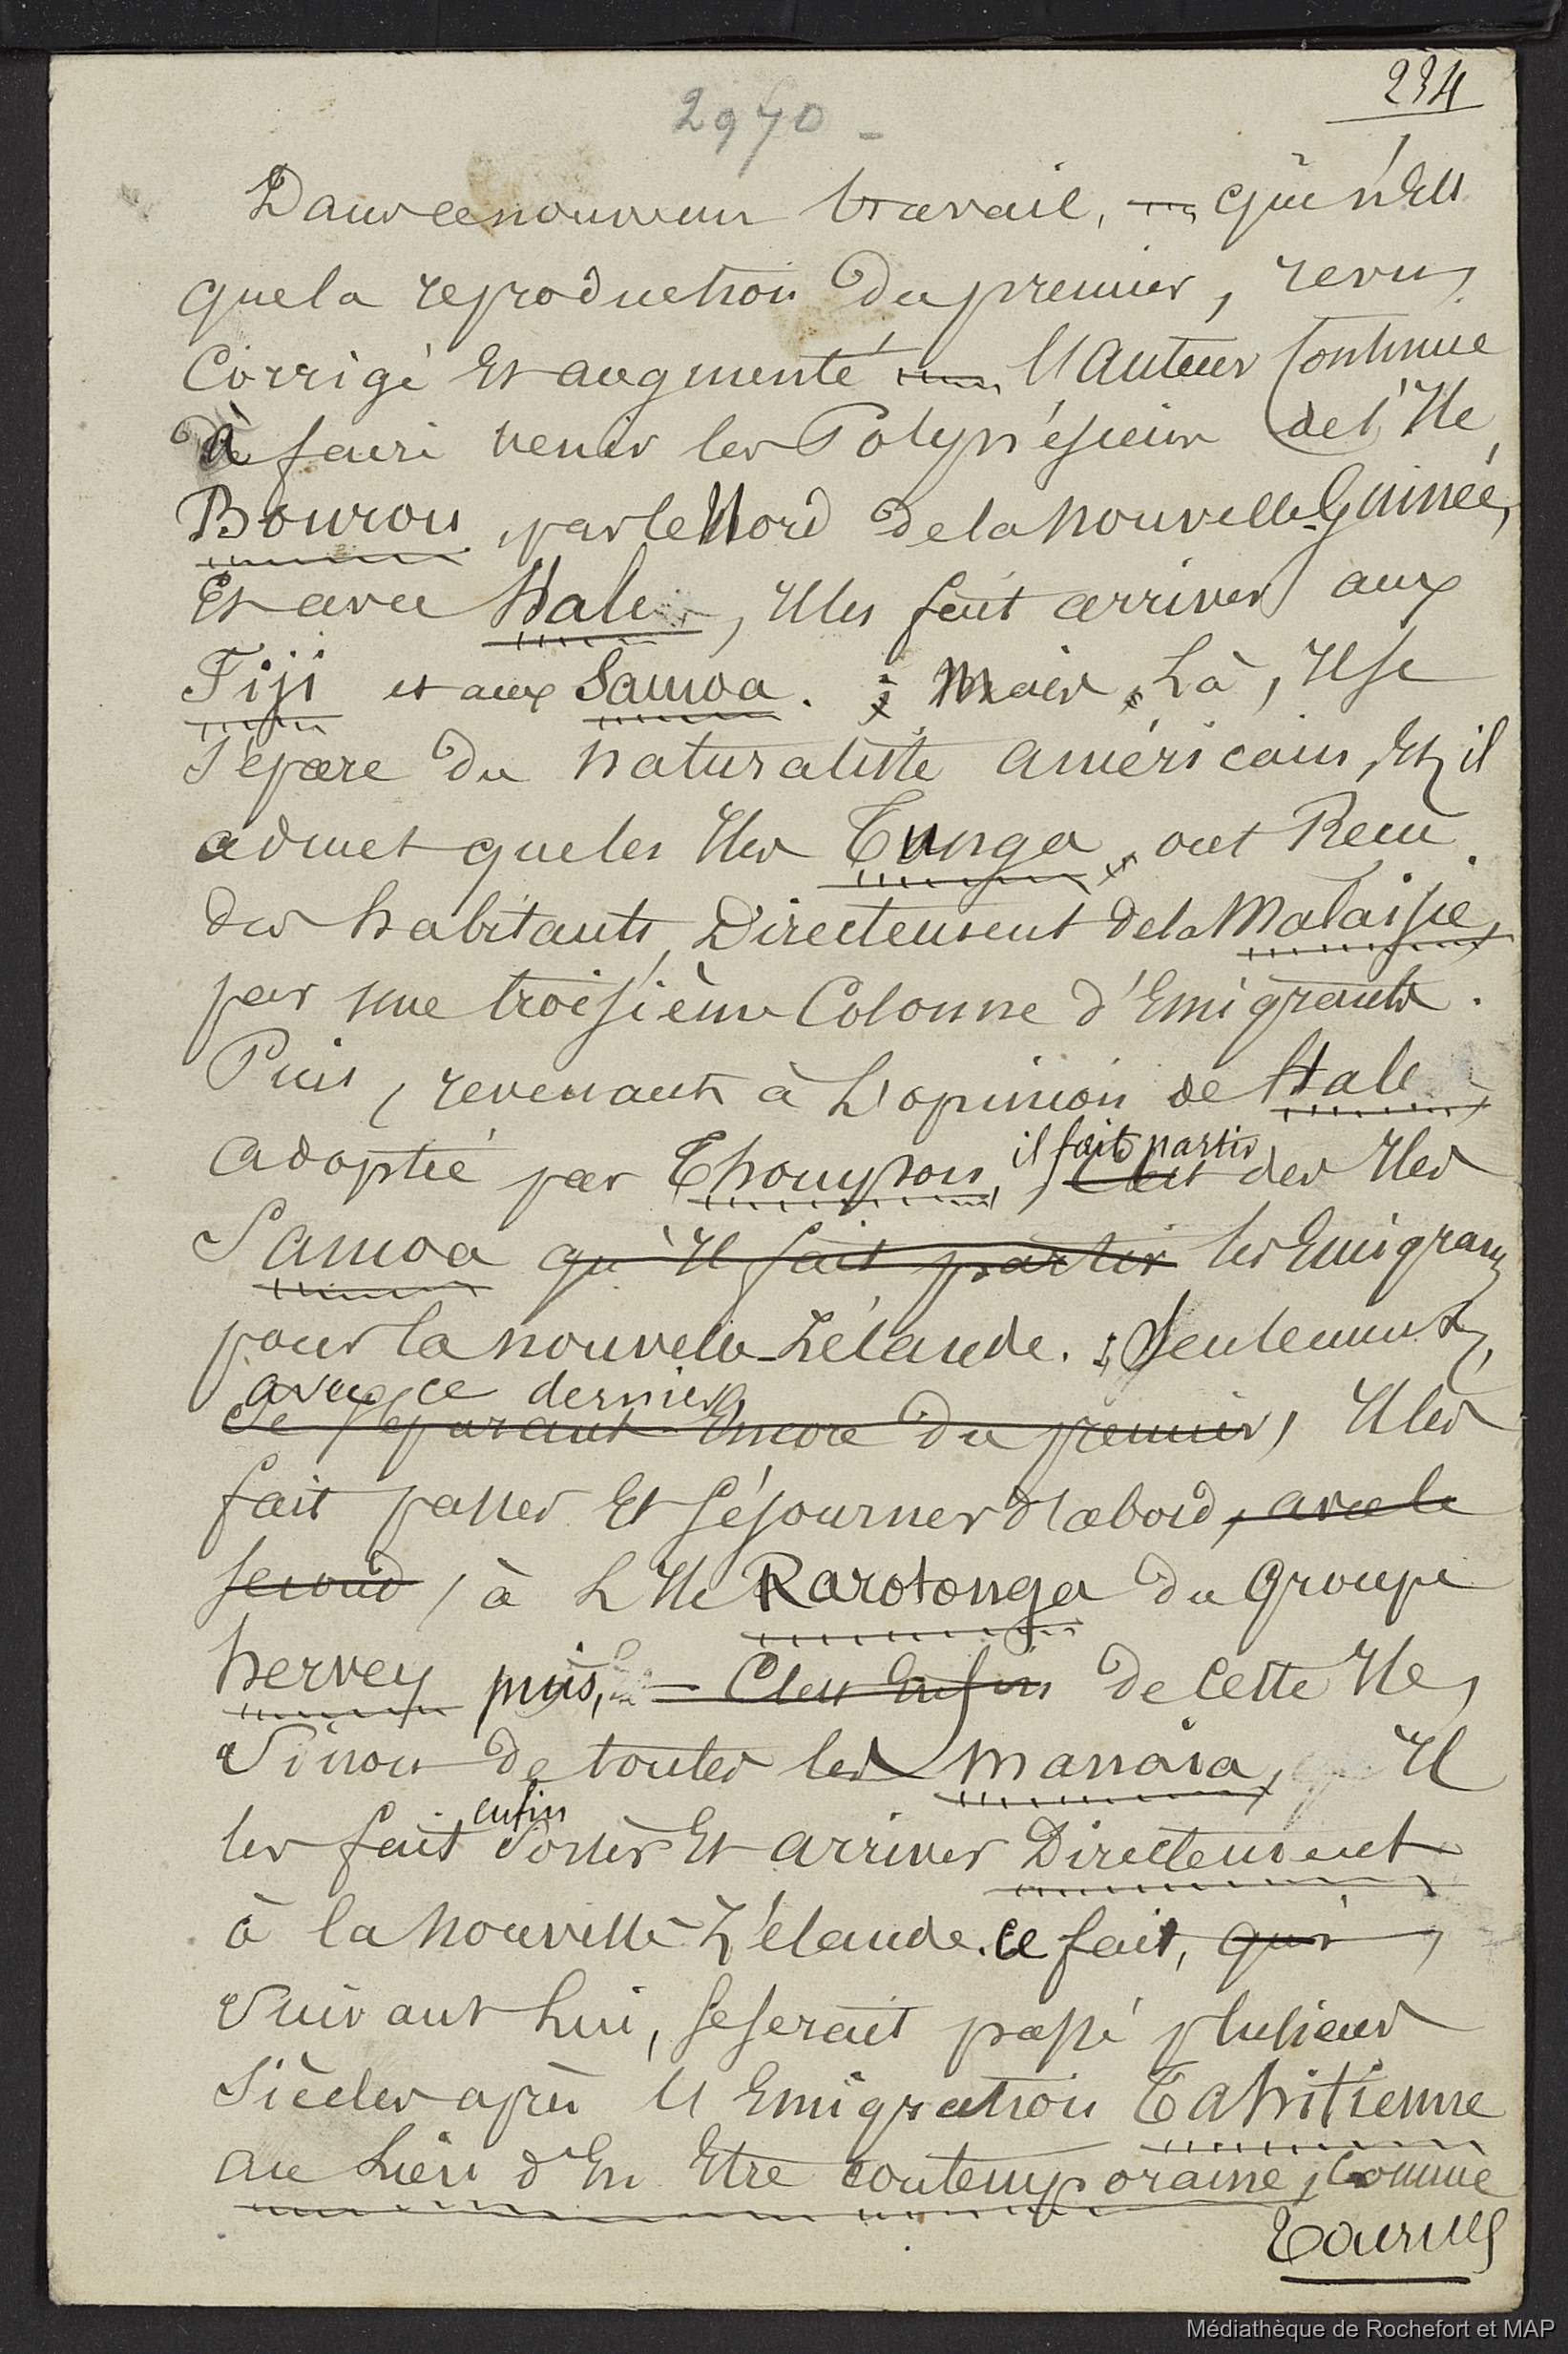 234
2940 -
Dans ce nouveau travail, qui n'est
que la reproduction du premier, revu,
Corrigé Et augmenté l'auteur Continue
à faire venir les Polynésiens de l'Ile
Bourou par le Nord de la nouvelle-Guinée,
Et avec Hale, Il les fait arriver aux
Fiji et aux Samoa. Mais, Là, Il se
sépare du naturaliste américain, Et il
admet que les Iles Tunga, ont Reçu
des habitants, Directement de la Malaisie,
par une troisième Colonne d'Emigrants.
Puis, revenant à L'opinion de Hale,
il fait partir
adoptée par Thompson, c'est des Iles
Samoa qu'il fait partir les Emigrans
pour la nouvelle-Zélande. Seulement,
avec ce dernier,
se séparant Encore du premier, Il les
fait passer Et séjourner d'abord, avec le
second, à L'Ile Rarotonga du Groupe
hervey puis, C'est Enfin de Cette Ile,
Sinon de toutes les manaia, Il
enfin
les fait sortir Et arriver Directement
à la Nouvelle-Zélande. Ce fait, qui,
Suivant Lui, se serait passé plusieurs
Siècles après l'Emigration Tahitienne
au Lieu d'En Etre contemporaine, Comme
Médiathèque de Rochefort et MAP